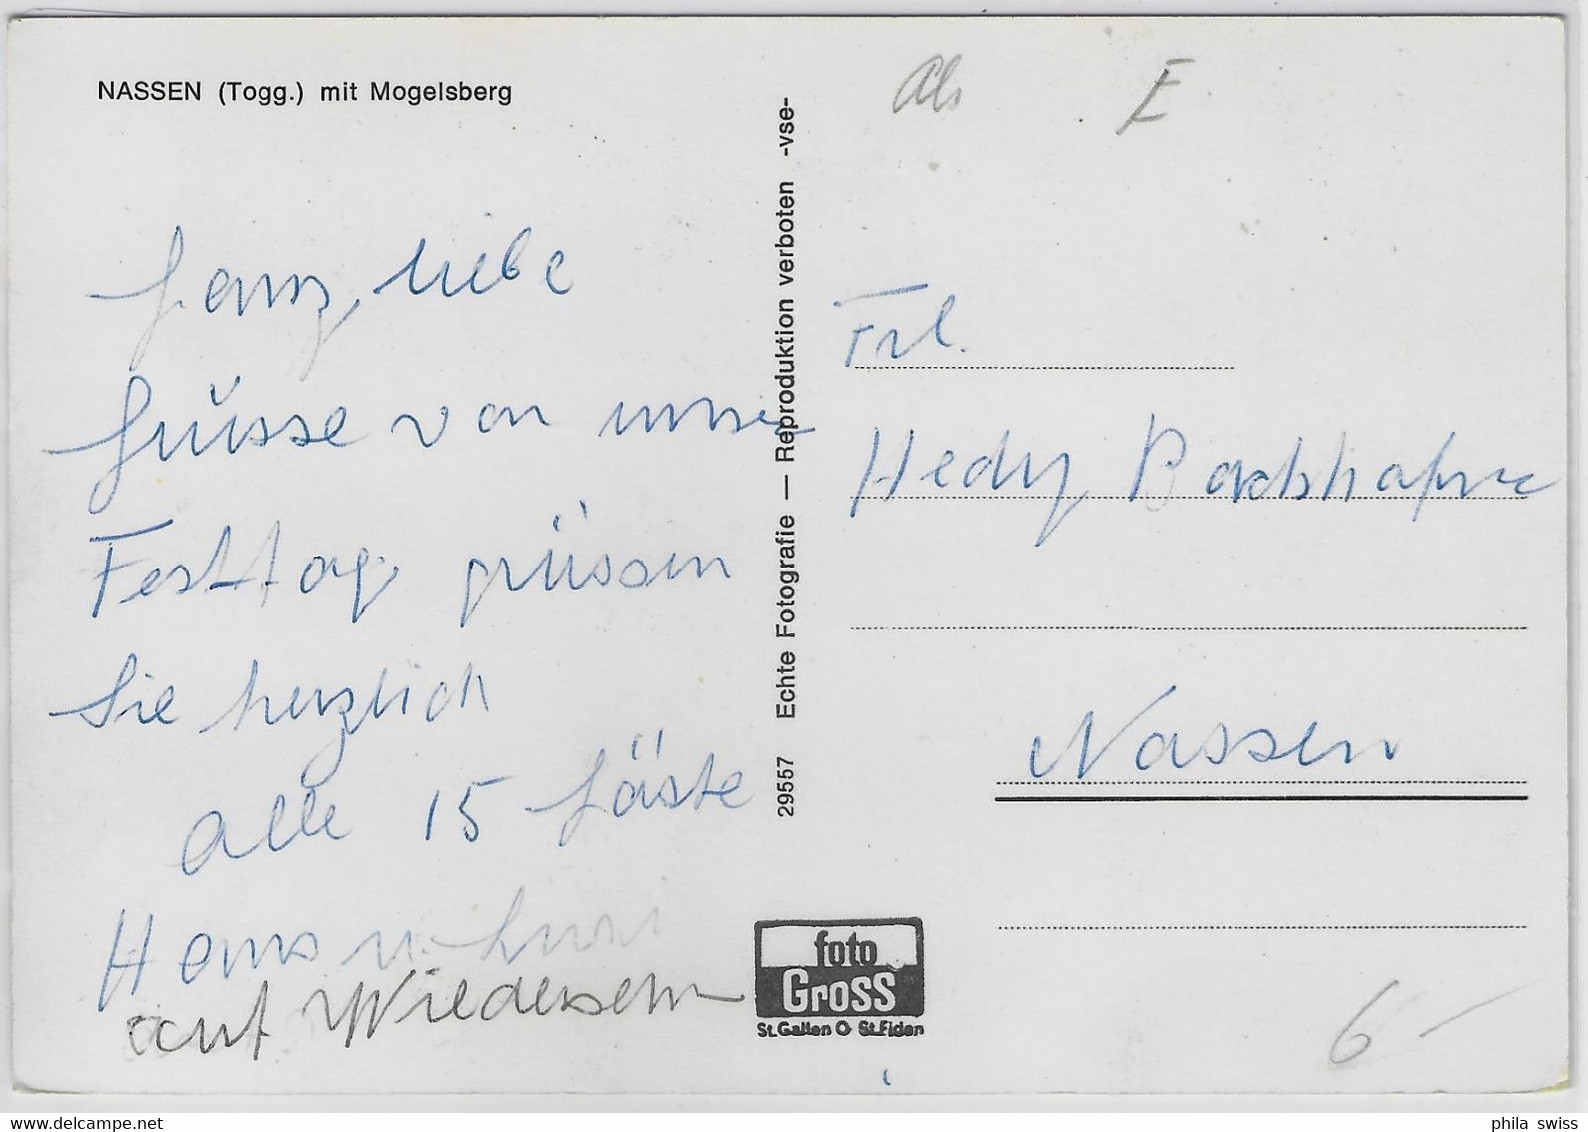 NASSEN (Togg.) mit Mogelsberg
Ganz liebe
Grüsse von unser
Festtag grüssen
Sie herzlich
alle 15 Gäste
Hans u.
auf Wiedersehn
29557 Echte Fotografie — Reproduktion verboten -vse-
foto
Gross
St.Gallen O St.Fiden
E
Frl.
Hedy
Nassen
6 –
www.delcampe.net
phila_swiss